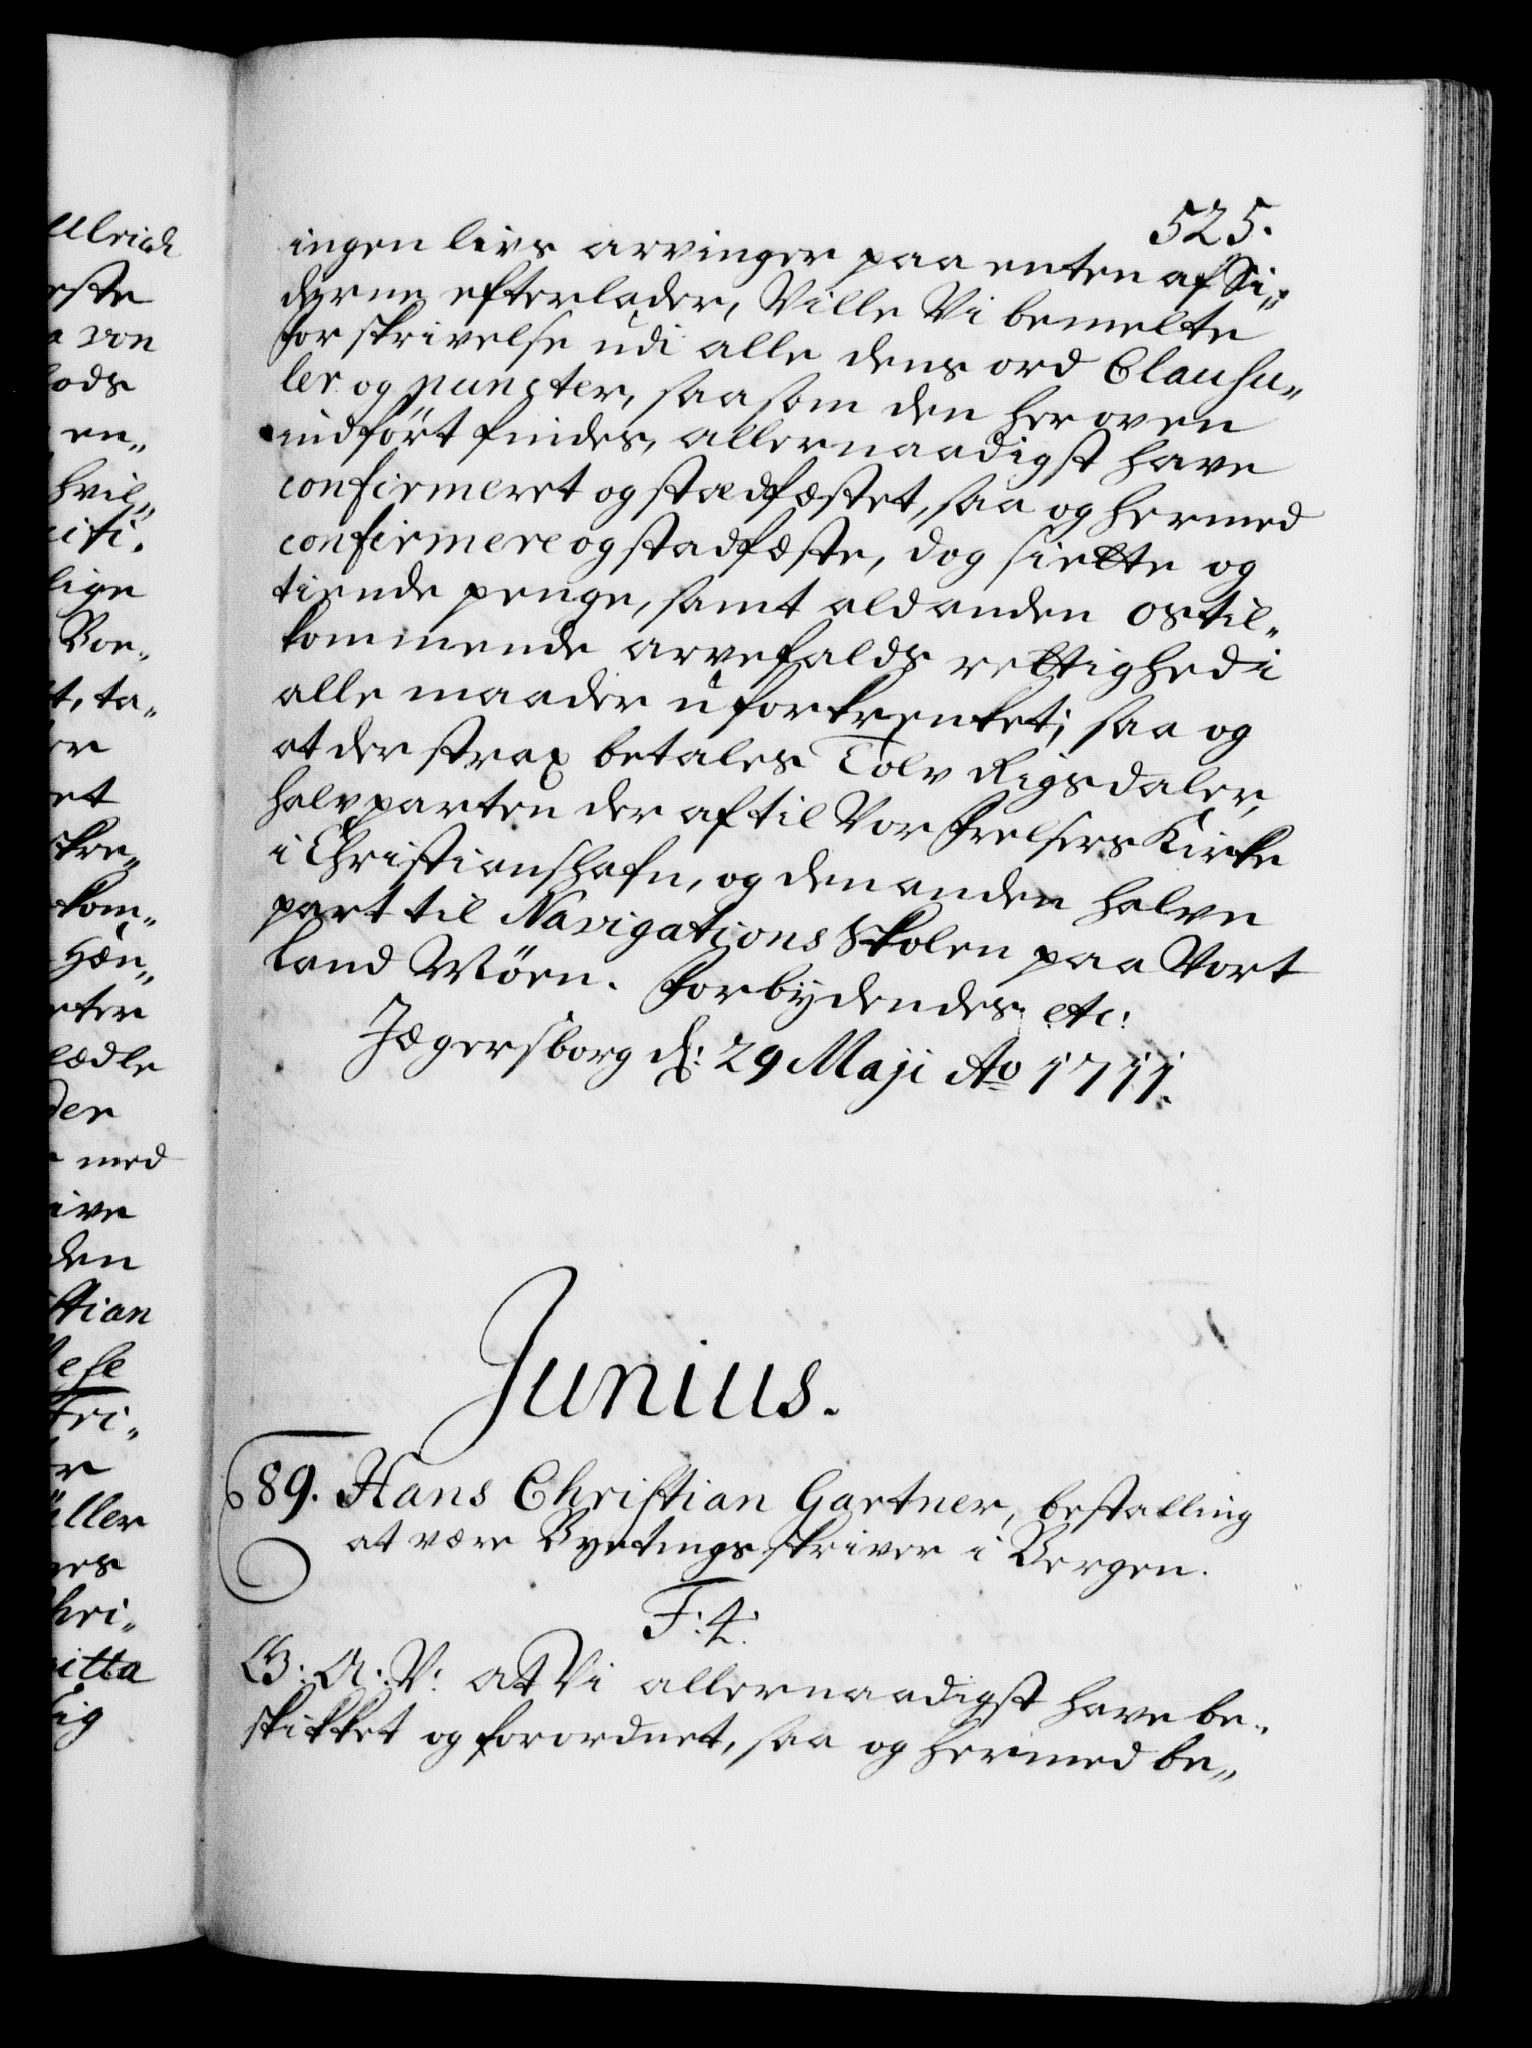 525.
ingen livs arvinger paa enten af Si„
derne efterlader, Ville Vi bemelte
forskrivelse udi alle dens ord Clausu„
ler og puncter, saasom den her oven
indført findes, allernaadigst have
confirmeret og stadfæstet, saa og hermed
confirmere og stadfæste, dog siette og
tiende penge, samt ald anden os til„
kommende arvefalds rettighed i
alle maader uforkrenket; saa og
at der strax betales Tolv Rigsdaler,
halvparten der af til Vor Frelsers Kirke
i Christianshafn, og den anden halve
part til Navigations Skolen paa Vort
Land Møen. Forbydendes etc:
Jægersborg d: 29 Maji Ao 1711.
Junius.
89. Hans Christian Gartner, bestalling
at være Byetingsskriver i Bergen.
F: 4:
G: A: V: at Vi allernaadigst have be„
skikket og forordnet, saa og hermed be„
Ulrich
este
von
ods
en„
hvil„
lige
Boe„
t, ta„
er
et
skre„
kom„
Hæn„
eter
ædle
der
med
ive
den
stian
Fri„
üller
nes
hri„
itta
ig